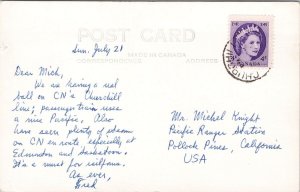 POST CARD
MADE IN CANADA
CORRESPONDENCE
ADDRESS
Sun. July 21
Dear Mich,
We are having a real
ball on CN's Churchill
line; passenger train uses
a nice Pacific. Also
have seen plenty of steam
on CN en route especially at
Edmonton and Saskatoon.
It's a must for railfans.
As ever,
Fred
Mr. Michel Knight
Pacific Ranger Station
Pollock Pines, California
USA
CHURCHILL